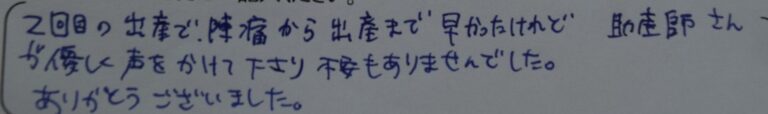 2回目の出産で、陣痛から出産まで早かったけれど 助産師さん
が優しく声をかけて下さり不安もありませんでした。
ありがとうございました。